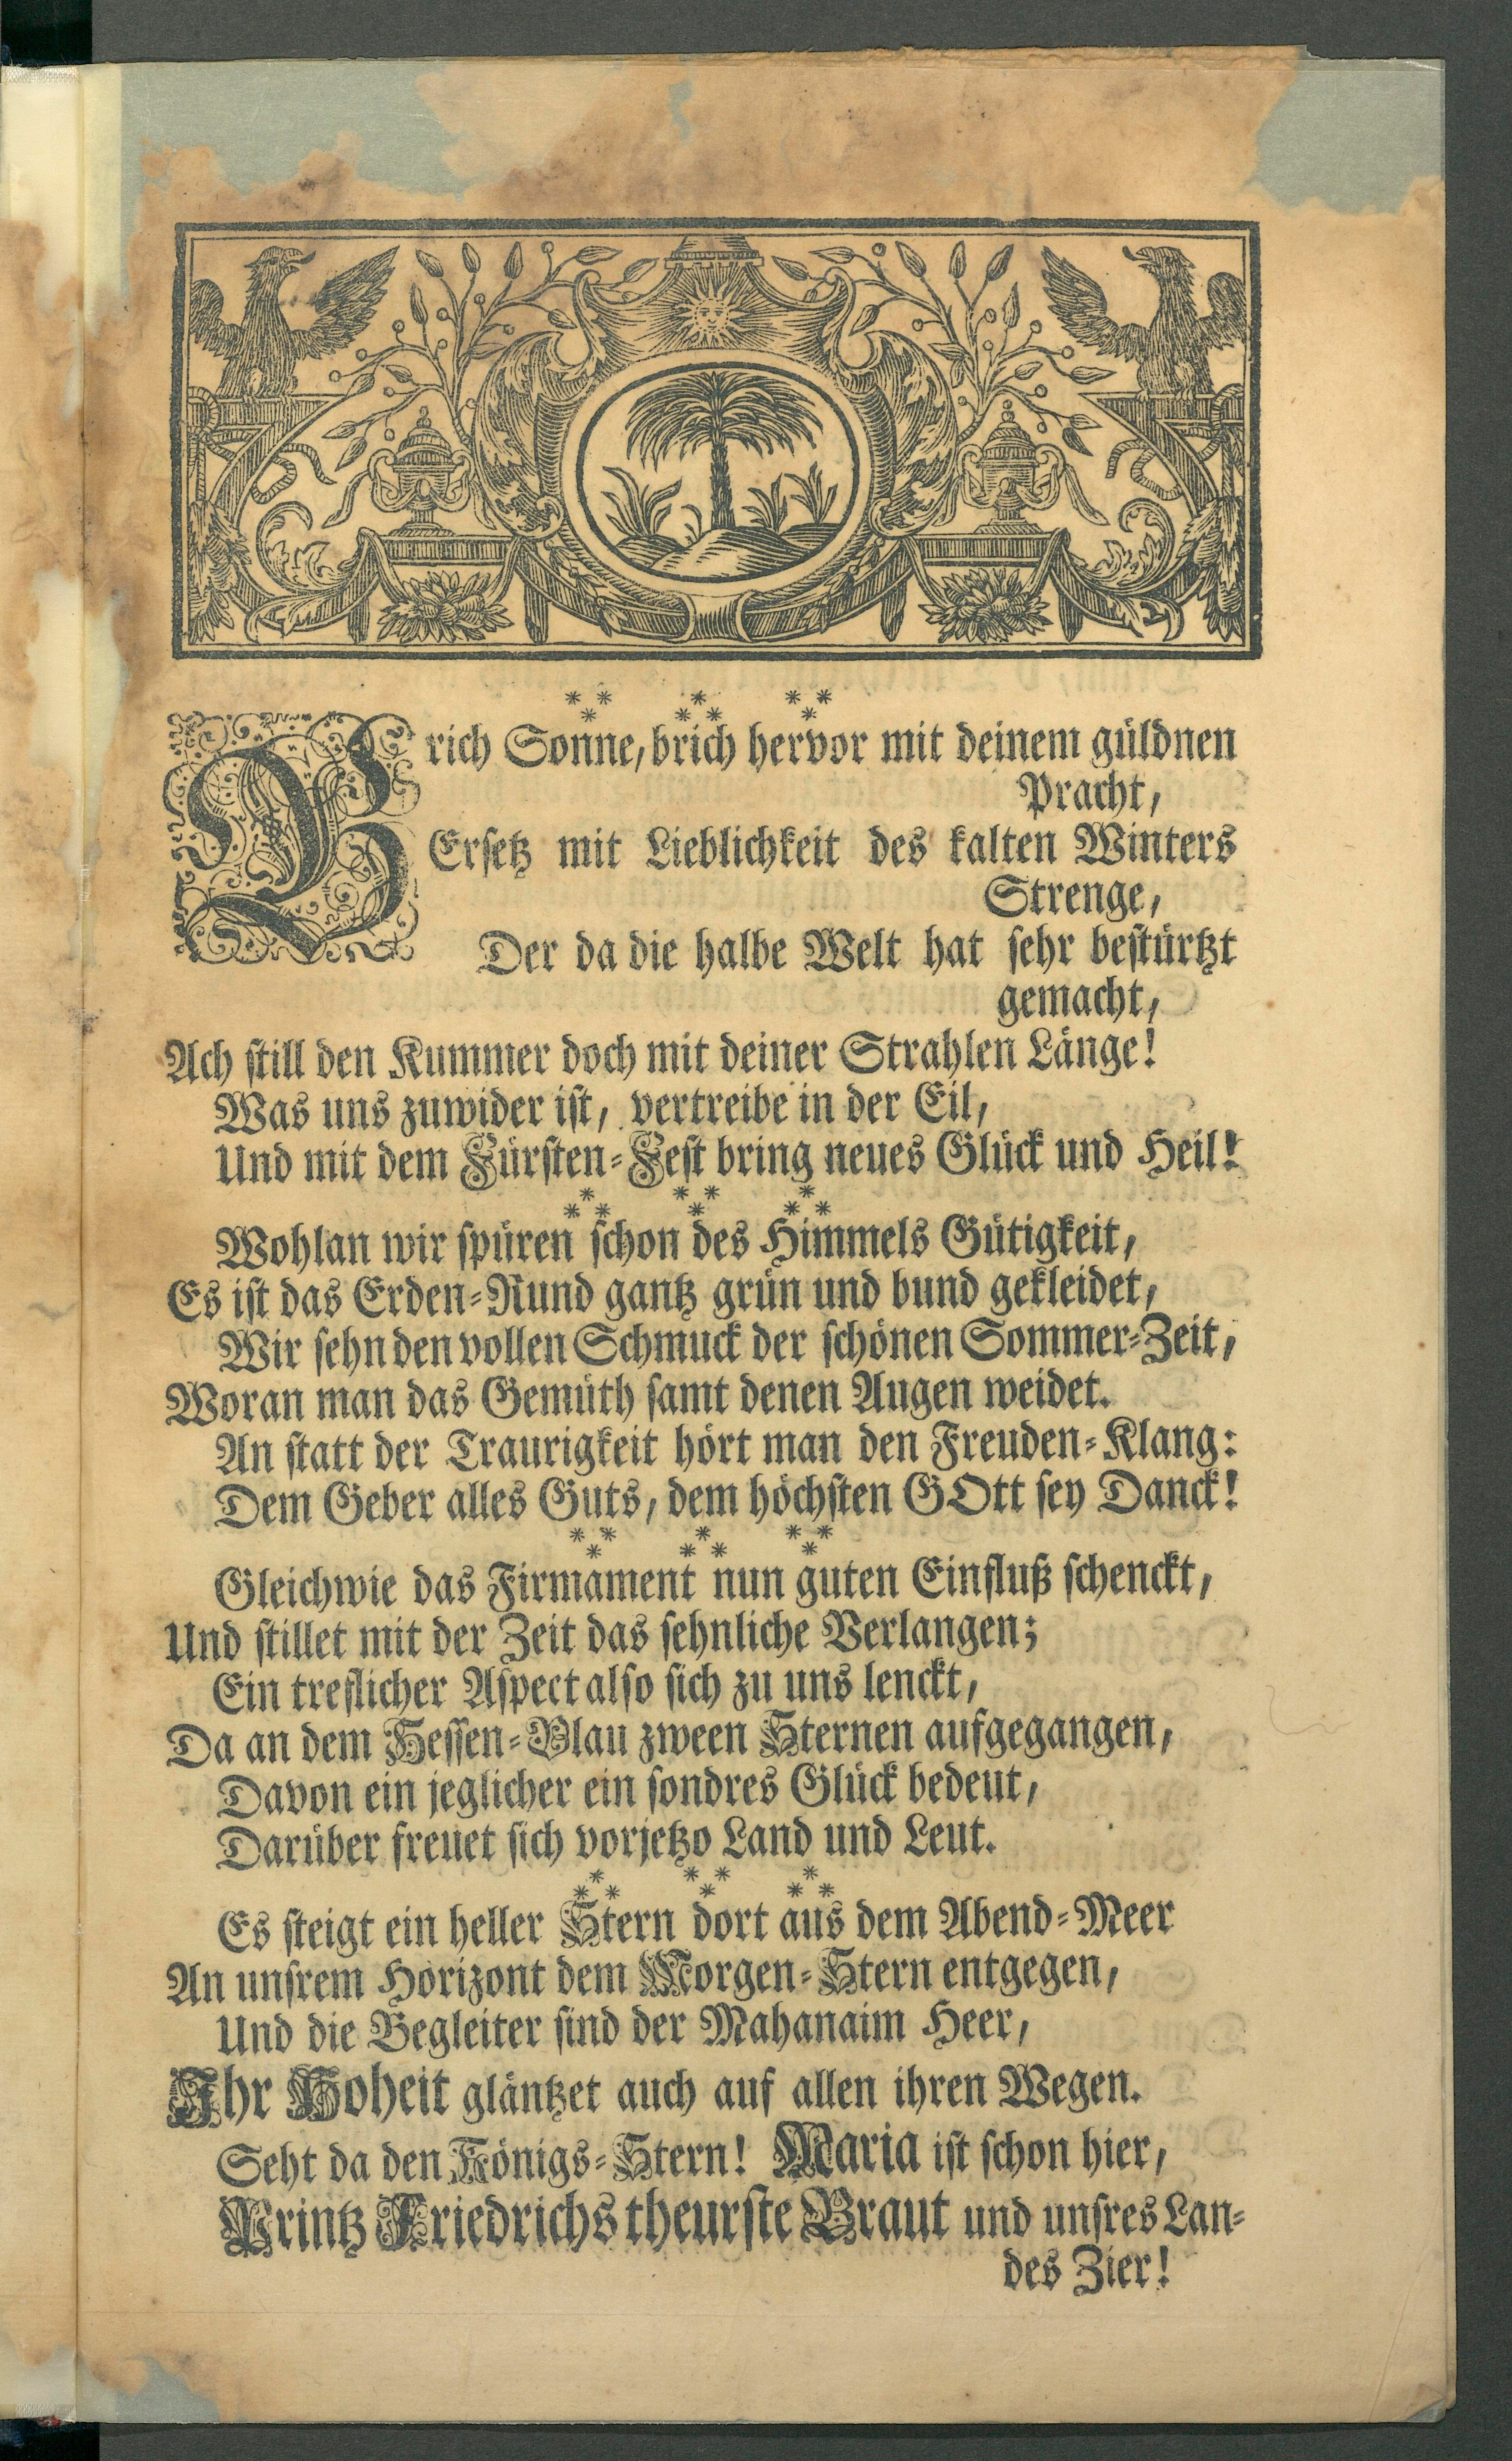 Brich Sonne, brich hervor mit deinem güldnen
Pracht,
Ersetz mit Lieblichkeit des kalten Winters
Strenge,
Der da die halbe Welt hat sehr bestürtzt
gemacht,
Ach still den Kummer doch mit deiner Strahlen Länge!
Was uns zuwider ist, vertreibe in der Eil,
Und mit dem Fürsten-Fest bring neues Glück und Heil!
Wohlan wir spüren schon des Himmels Gütigkeit,
Es ist das Erden-Rund gantz grün und bund gekleidet,
Wir sehn den vollen Schmuck der schönen Sommer-Zeit,
Woran man das Gemüth samt denen Augen weidet.
An statt der Traurigkeit hört man den Freuden-Klang:
Dem Geber alles Guts, dem höchsten GOtt sey Danck!
Gleichwie das Firmament nun guten Einfluß schenckt,
Und stillet mit der Zeit das sehnliche Verlangen;
Ein treflicher Aspect also sich zu uns lenckt,
Da an dem Hessen-Blau zween Sternen aufgegangen,
Davon ein jeglicher ein sondres Glück bedeut,
Darüber freuet sich vorjetzo Land und Leut.
Es steigt ein heller Stern dort aus dem Abend-Meer
An unsrem Horizont dem Morgen-Stern entgegen,
Und die Begleiter sind der Mahanaim Heer,
Ihr Hoheit gläntzet auch auf allen ihren Wegen.
Seht da den Königs-Stern! Maria ist schon hier,
Printz Friedrichs theurste Braut und unsres Lan-
des Zier!